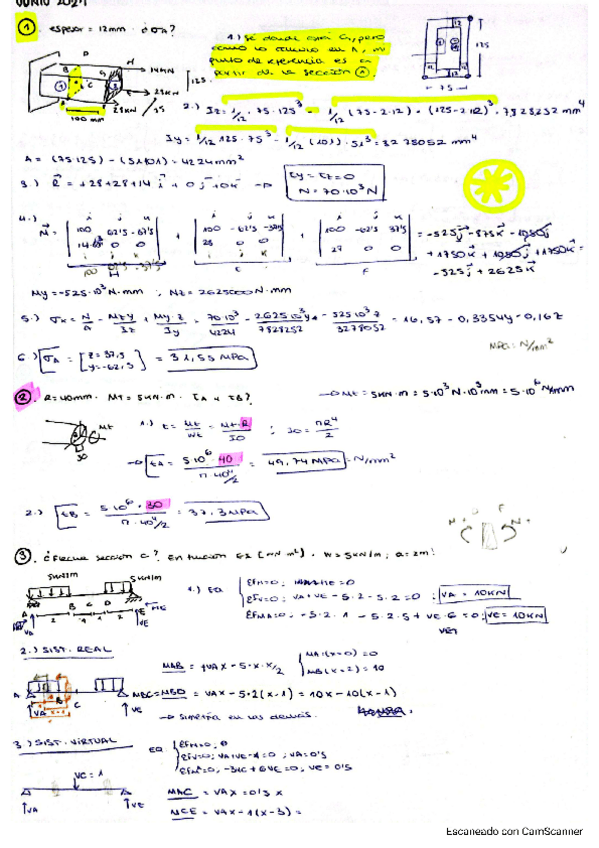 JUNIO 2021
① espesor = 12mm · ¿σA?
1.) Sé donde está G, pero
como lo calculo en A, mi
punto de referencia es a
partir de la sección Ⓐ
B D H
14kN
① C G ③
28kN
28kN
125
75
100 mm
125
75
2.) Iz = 1/12 · 75 · 125³ - 1/12 (75-2·12) · (125-2·12)³ = 7828252 mm⁴
Iy = 1/12 125 · 75³ - 1/12 (101) · 51³ = 3278052 mm⁴
A = (75·125) - (51·101) = 4224 mm²
3.) R = +28+28+14 i + 0 j + 0k → Ty = Tz = 0
N = 70·10³ N
4.) M = i j k
100 -62'5 -37'5
28 0 0
= -525j - 875k - 1050j
+ 1750k + 1050j + 1750k =
-525j + 2625k
E
F
My = -525·10³ N·mm ; Mz = 2625000 N·mm
5.) σx = N/A - Mz·y/Iz + My·z/Iy = 70·10³/4224 - 2625·10³y/7828252 + -525·10³z/3278052 = 16,57 - 0,3354y - 0,16z
MPa = N/mm²
6.) σA = [z = 37,5 y = -62,5] = 31,53 MPa
② R = 40mm · Mt = 5kN·m · τA y τB?
→ Mt = 5kN·m = 5·10³ N·10³mm = 5·10⁶ N·mm
Mt
30
1.) τ = Mt/Wt = Mt·R/I0 ; I0 = πR⁴/2
→ τA = 5·10⁶ · 40 / π·40⁴/2 = 49,74 MPa = N/mm²
2.) τB = 5·10⁶ · 30 / π·40⁴/2 = 37,3 MPa
③ ¿Flecha sección C? En función EI (mN m²) · W = 5kN/m; a = 2m!
5kN/m 5kN/m
A B C D E
2 1 1 2
VA VE
1.) EQ
ΣFH=0; HA=HE=0
ΣFV=0; VA+VE-5·2-5·2 = 0 ; VA = 10kN
ΣFMA=0; -5·2·1 - 5·2·5 + VE·6 = 0; VE = 10kN
2.) SIST. REAL
A B C
VA VE
MAB = +VAx - 5·x·x/2
MA(x=0) = 0
MB(x=2) = 10
MBC = MBD = VAx - 5·2(x-1) = 10x - 10(x-1)
→ Simetría en los demás.
3.) SIST. VIRTUAL
VC = 1
VA VE
EQ
ΣFH=0; 0
ΣFV=0; VA+VE-1=0; VA=0'5
ΣFM=0; -3VC+6VE=0; VE=0'5
MAC = VAx = 0'5x
MCE = VAx - 1(x-3) =
Escaneado con CamScanner